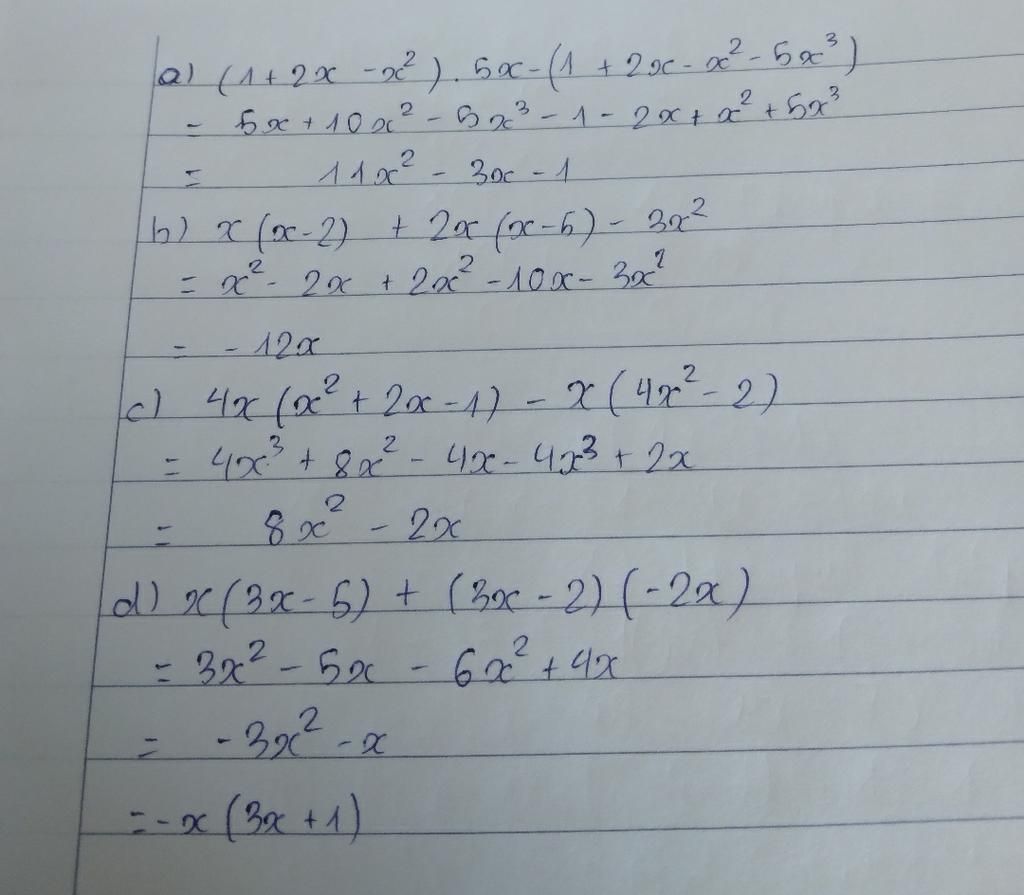 a) (1 + 2x - x²) . 5x - (1 + 2x - x² - 5x³)
= 5x + 10x² - 5x³ - 1 - 2x + x² + 5x³
= 11x² - 3x - 1
b) x (x - 2) + 2x (x - 5) - 3x²
= x² - 2x + 2x² - 10x - 3x²
= - 12x
c) 4x (x² + 2x - 1) - x (4x² - 2)
= 4x³ + 8x² - 4x - 4x³ + 2x
= 8x² - 2x
d) x (3x - 5) + (3x - 2) (-2x)
= 3x² - 5x - 6x² + 4x
= - 3x² - x
= - x (3x + 1)